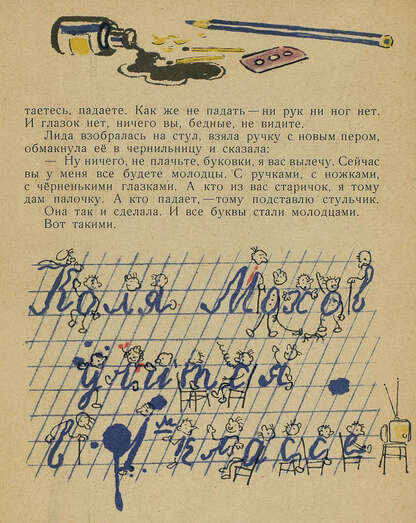 таетесь, падаете. Как же не падать — ни рук ни ног нет.
И глазок нет, ничего вы, бедные, не видите.
Лида взобралась на стул, взяла ручку с новым пером,
обмакнула её в чернильницу и сказала:
— Ну ничего, не плачьте, буковки, я вас вылечу. Сейчас
вы у меня все будете молодцы. С ручками, с ножками,
с чёрненькими глазками. А кто из вас старичок, я тому
дам палочку. А кто падает, — тому подставлю стульчик.
Она так и сделала. И все буквы стали молодцами.
Вот такими.
Коля Мохов
учится
в 1м классе